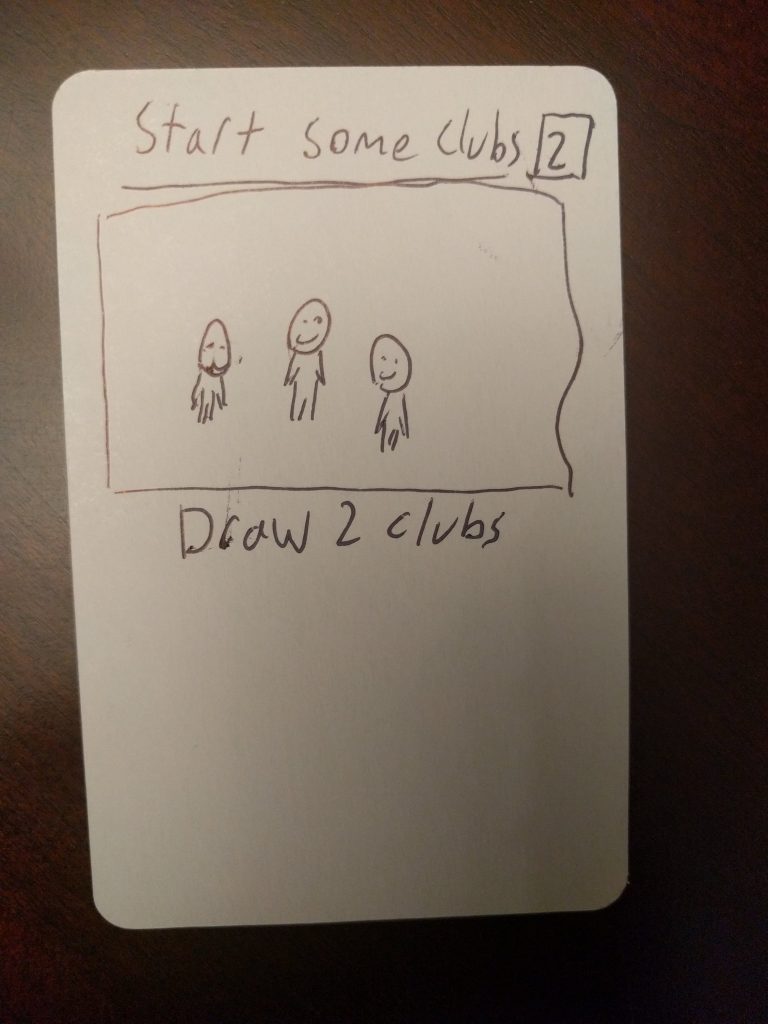 Start some clubs 2
Draw 2 clubs